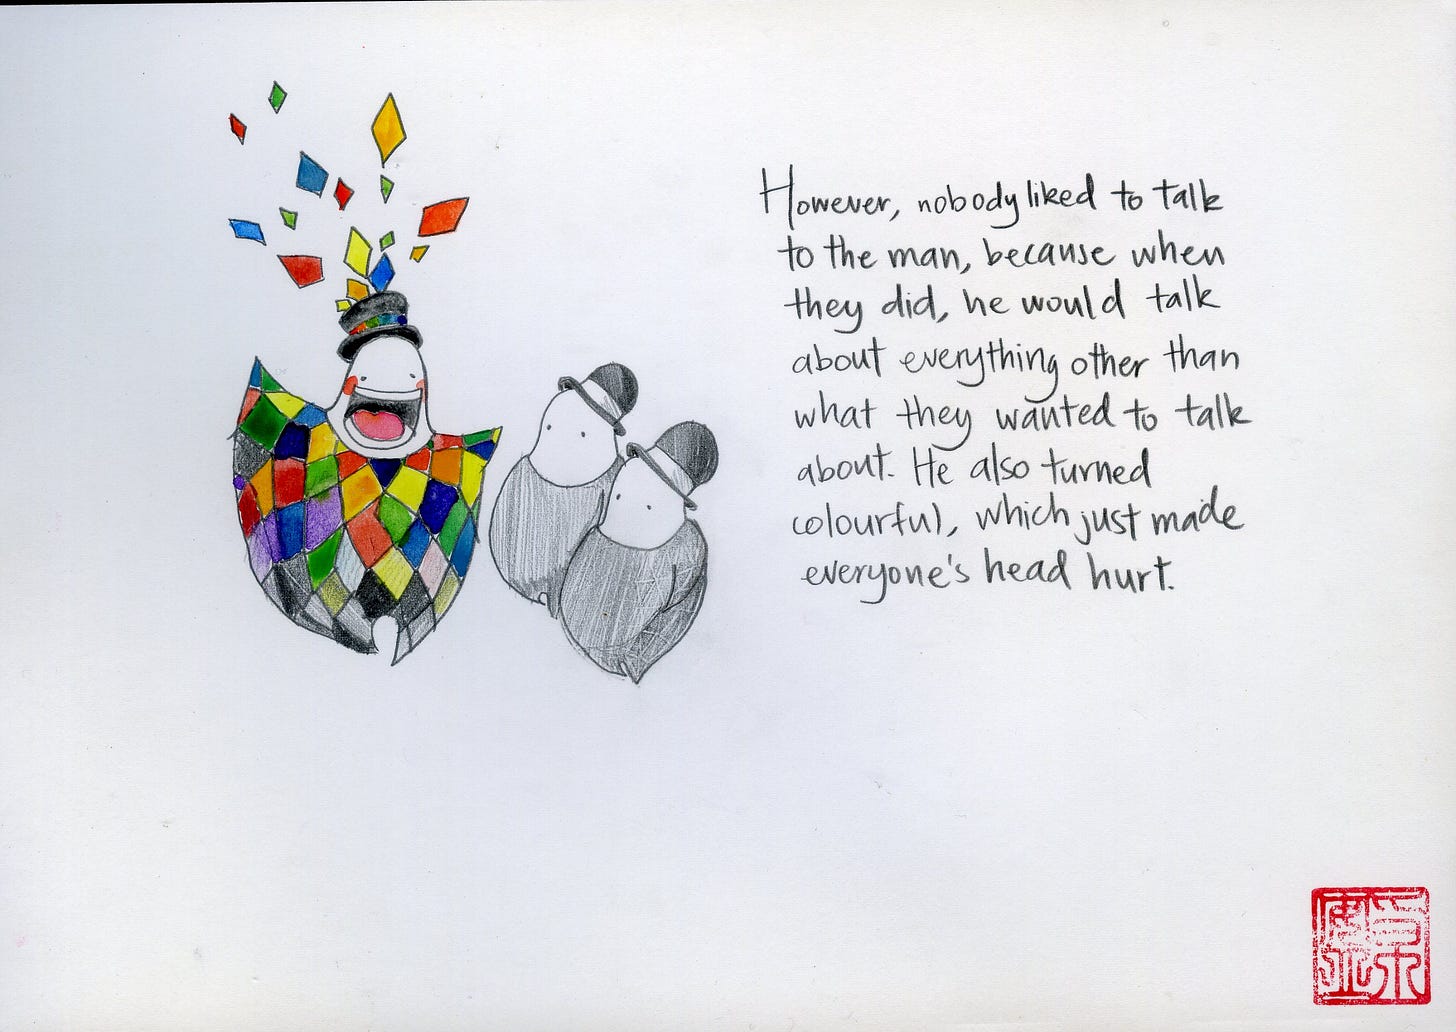 However, nobody liked to talk
to the man, because when
they did, he would talk
about everything other than
what they wanted to talk
about. He also turned
colourful, which just made
everyone's head hurt.